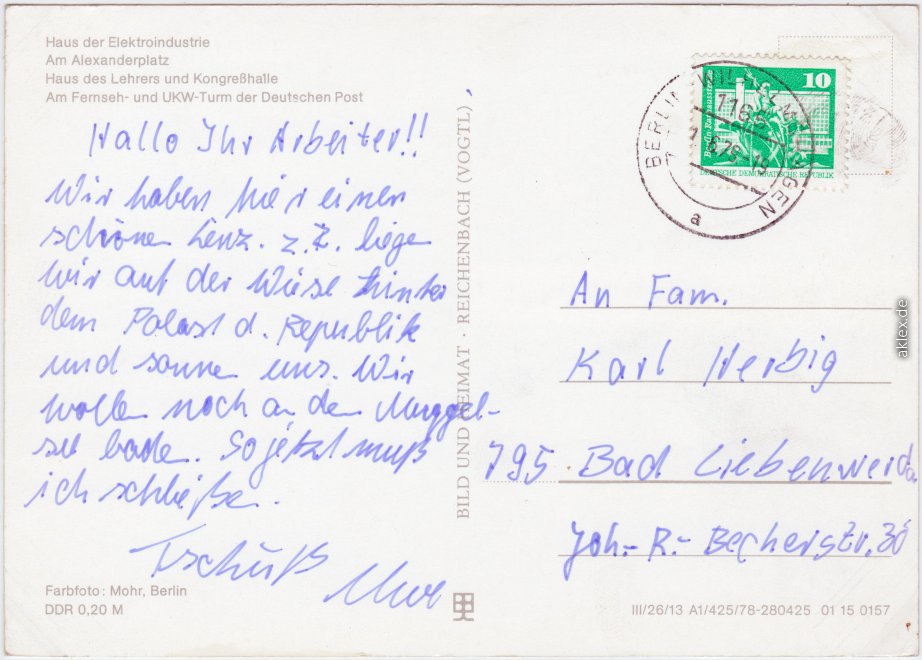 Haus der Elektroindustrie
Am Alexanderplatz
Haus des Lehrers und Kongreßhalle
Am Fernseh- und UKW-Turm der Deutschen Post
Hallo Ihr Arbeiter!!
Wir haben hier einen
schönen Lenz. z.Z. liegen
wir auf der Wiese hinter
dem Palast d. Republik
und sonnen uns. Wir
wollen noch an den Müggel-
see baden. So jetzt muß
ich schließen.
Tschüß
Uwe
Farbfoto: Mohr, Berlin
DDR 0,20 M
BILD UND HEIMAT · REICHENBACH (VOGTL)
10
Berlin, Rathausstraße
DEUTSCHE DEMOKRATISCHE REPUBLIK
BERLIN WILHELMSHAGEN
1165
a
An Fam.
Karl Herbig
795 Bad Liebenwerda
Joh.-R.-Becherstr. 30
III/26/13 A1/425/78-280425 01 15 0157
aklex.de